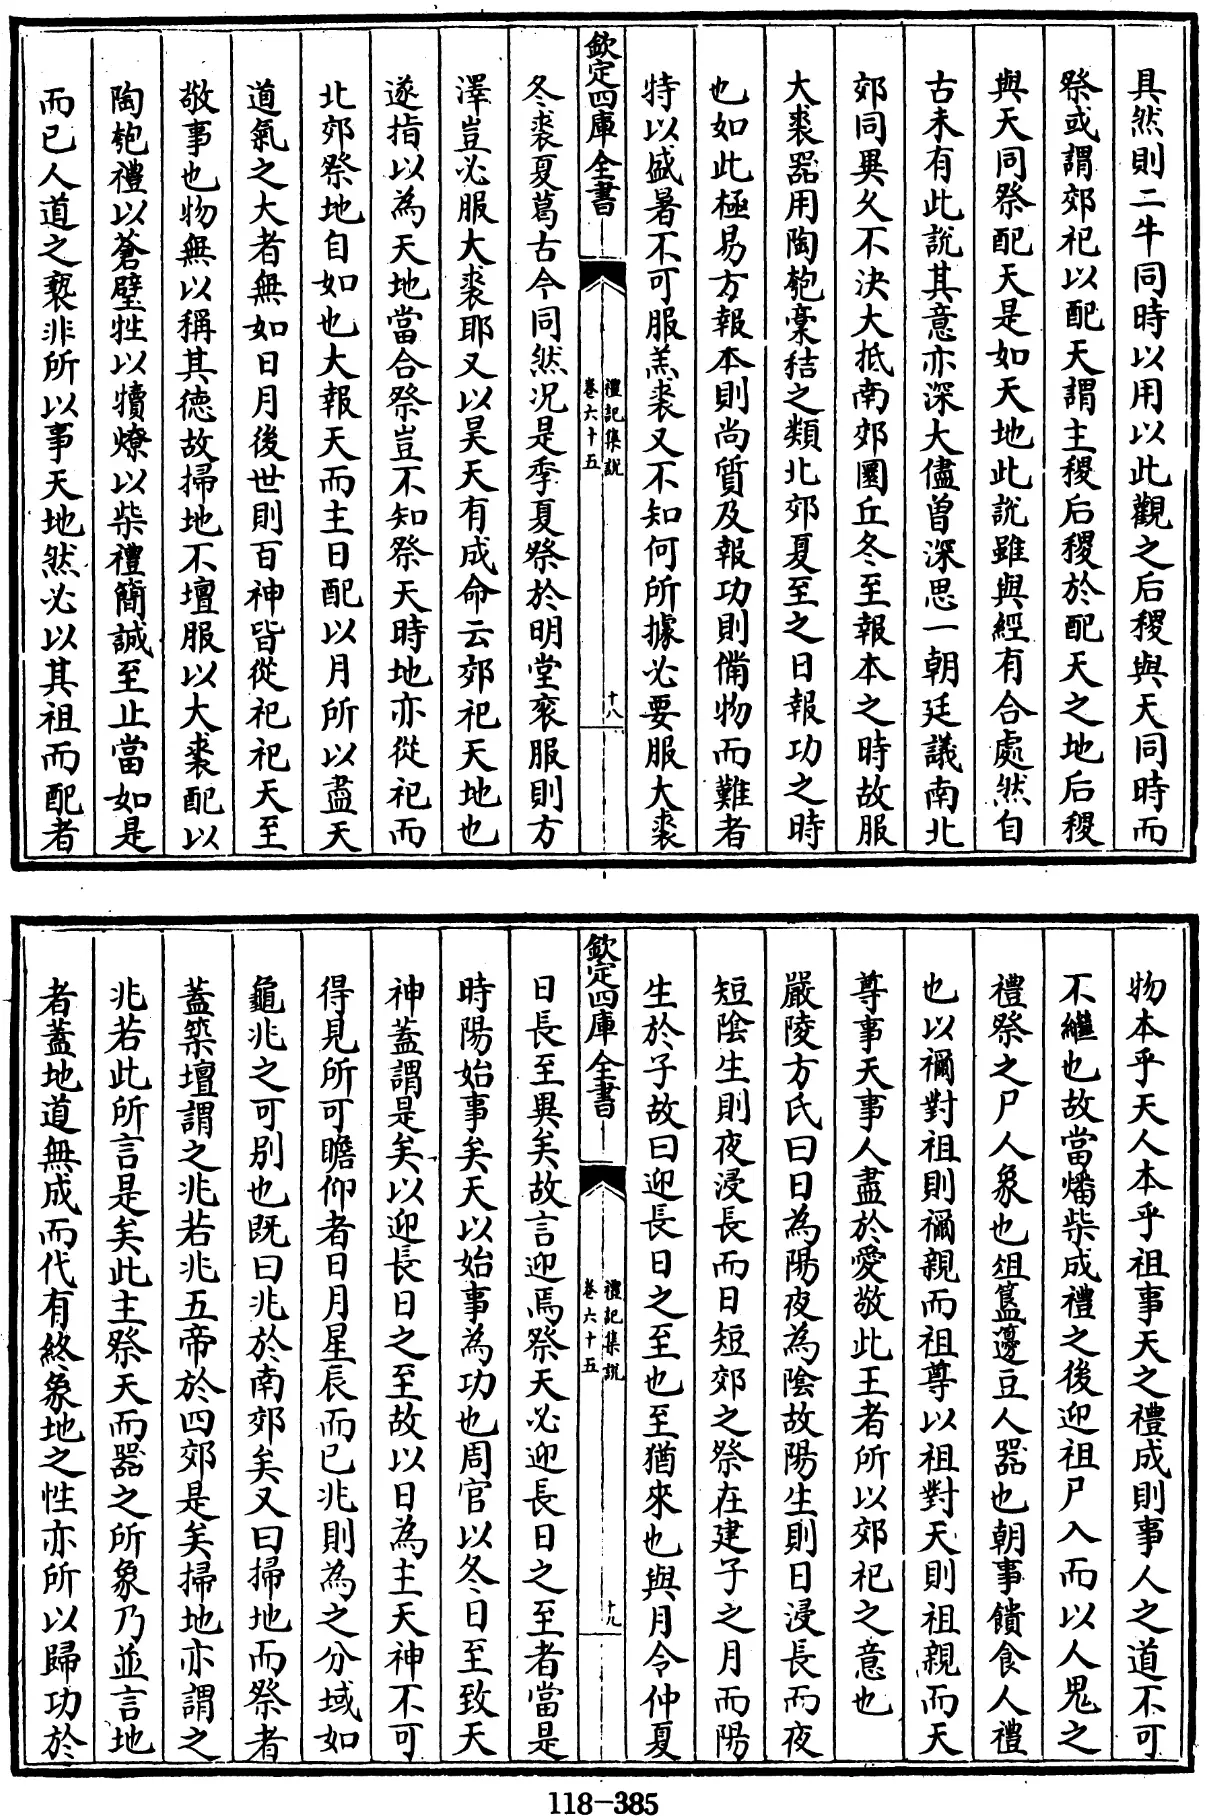 具然則二牛同時以用以此觀之后稷與天同時而
祭或謂郊祀以配天謂主稷后稷於配天之地后稷
與天同祭配天是如天地此說雖與經有合處然自
古未有此說其意亦深大儘曽深思一朝廷議南北
郊同異久不決大抵南郊圜丘冬至報本之時故服
大裘器用陶匏稾秸之類北郊夏至之日報功之時
也如此極易方報本則尚質及報功則備物而難者
特以盛暑不可服羔裘又不知何所據必要服大裘
欽定四庫全書
禮記集說
卷六十五
十八
冬裘夏葛古今同然况是季夏祭於明堂衮服則方
澤豈必服大裘耶又以昊天有成命云郊祀天地也
遂指以為天地當合祭豈不知祭天時地亦從祀而
北郊祭地自如也大報天而主日配以月所以盡天
道氣之大者無如日月後世則百神皆從祀祀天至
敬事也物無以稱其德故掃地不壇服以大裘配以
陶匏禮以蒼璧牲以犢燎以柴禮簡誠至止當如是
而已人道之褻非所以事天地然必以其祖而配者
物本乎天人本乎祖事天之禮成則事人之道不可
不繼也故當燔柴成禮之後迎祖尸入而以人鬼之
禮祭之尸人象也俎簋籩豆人器也朝事饋食人禮
也以禰對祖則禰親而祖尊以祖對天則祖親而天
尊事天事人盡於愛敬此王者所以郊祀之意也
嚴陵方氏曰日為陽夜為陰故陽生則日浸長而夜
短陰生則夜浸長而日短郊之祭在建子之月而陽
生於子故曰迎長日之至也至猶來也與月令仲夏
欽定四庫全書
禮記集說
卷六十五
十九
日長至異矣故言迎焉祭天必迎長日之至者當是
時陽始事矣天以始事為功也周官以冬日至致天
神蓋謂是矣以迎長日之至故以日為主天神不可
得見所可瞻仰者日月星辰而已兆則為之分域如
龜兆之可別也既曰兆於南郊矣又曰掃地而祭者
蓋築壇謂之兆若兆五帝於四郊是矣掃地亦謂之
兆若此所言是矣此主祭天而器之所象乃並言地
者蓋地道無成而代有終象地之性亦所以歸功於
118-385